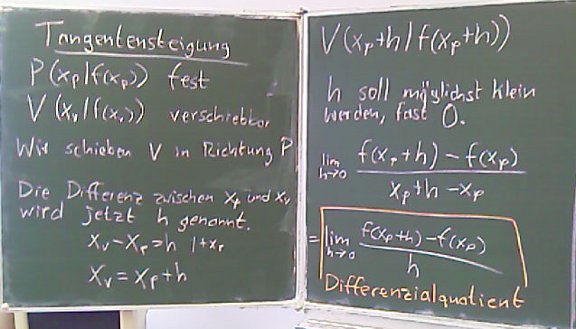 Tangentensteigung
P(xₚ/f(xₚ)) fest
V(xᵥ/f(xᵥ)) verschiebbar
Wir schieben V in Richtung P
Die Differenz zwischen xₚ und xᵥ
wird jetzt h genannt.
xᵥ-xₚ=h |+xₚ
xᵥ=xₚ+h
V(xₚ+h/f(xₚ+h))
h soll möglichst klein
werden, fast 0.
lim h→0 (f(xₚ+h)-f(xₚ))/(xₚ+h-xₚ)
= lim h→0 (f(xₚ+h)-f(xₚ))/h
Differenzialquotient